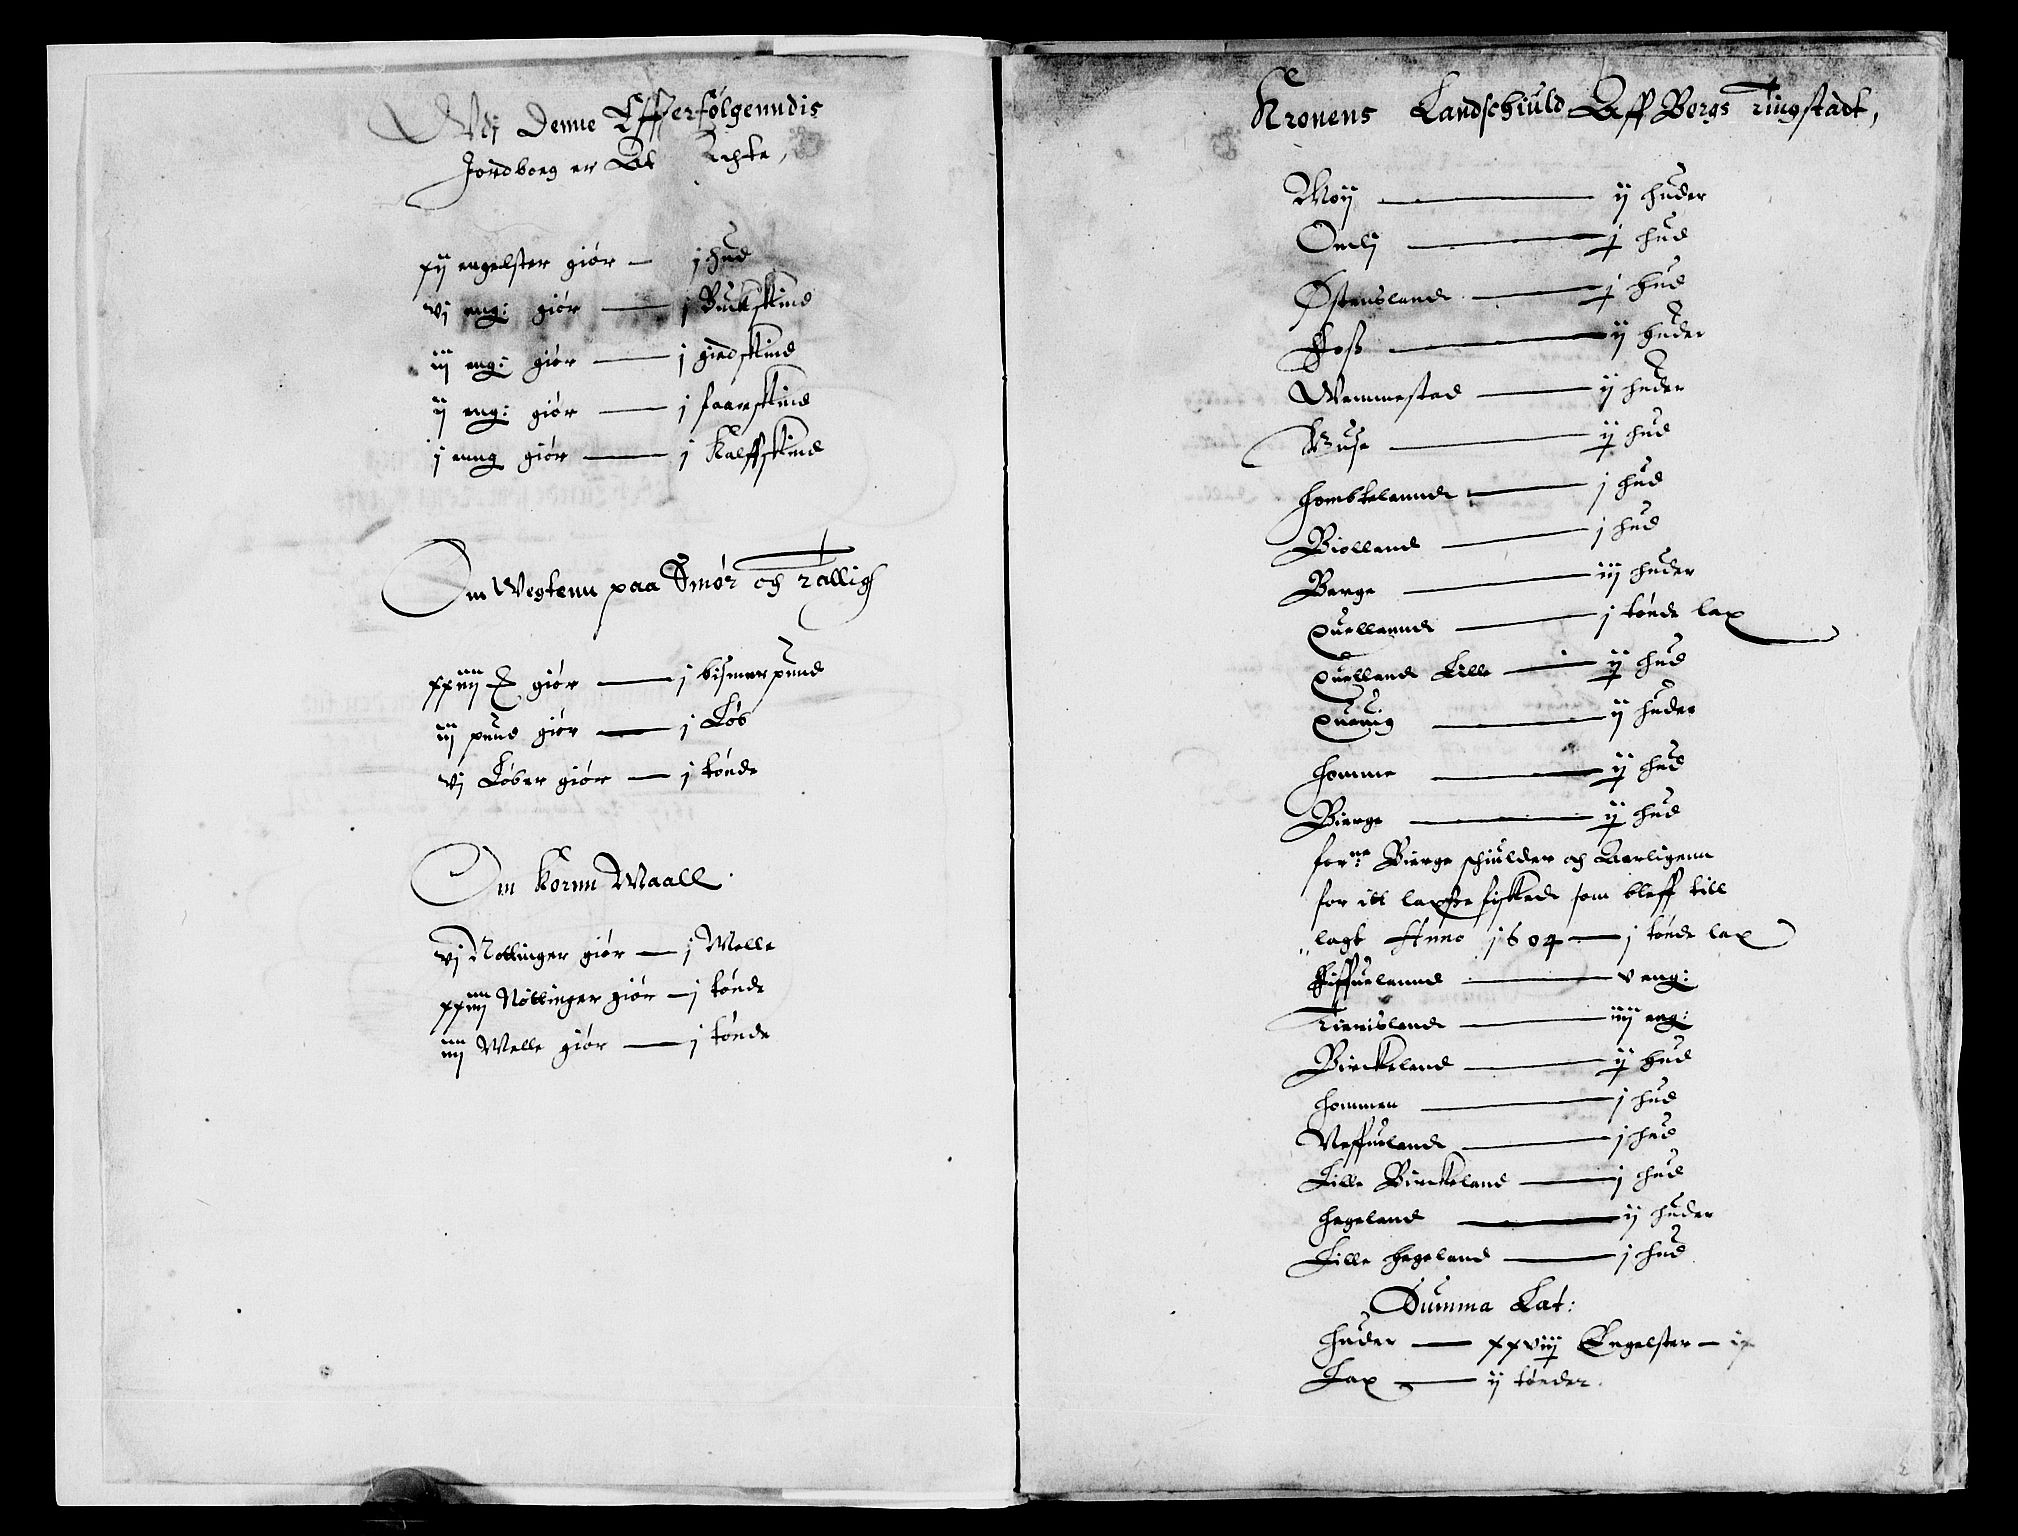 Udj Denne Effterfølgenndis
Jordboeg er At Achte,
xij engelster giør — j hud
vj eng: giør — j Buckskind
iij eng: giør — j giedskind
ij eng: giør — j faareskind
j enng giør — j Kalffskind
Om Wegtenn paa Smør och Tallig
xxiiij giør — j bismerpund
iij pund giør — j Løb
vj Løber giør — j tønde
Om Kornn Maall.
vj Nottinger giør — j Melle
xxiiij Nøttinger giør — j tønde
iiij Melle giør — j tønde
Kronens Landschiuld Aff Borgs Tingstadt,
Moij — ij huder
Omlj — j hud
Østensland — j hud
Foss — ij huder
Wemmestad — ij huder
Buse — ij hud
homkelannd — j hud
Biolland — j hud
Berge — iij huder
Quellannd — j tønde lax
Quelland Lille — ij hud
Quauig — ij huder
homme — ij hud
Bierge — ij hud
forne: Bierge schiulder och Aarligenn
for itt laxefiskede som bleff till
lagt Anno 1604 — j tønde lax
Fiffuelannd — v eng:
Tierisland — iiij eng:
Birckeland — ij hud
hommen — j hud
Neffueland — j hud
Lille Birckeland — j hud
hegeland — ij huder
Lille hegeland — j hud
Summa Lat:
huder — xxviij Engelster — ix
Lax — ij tønder.